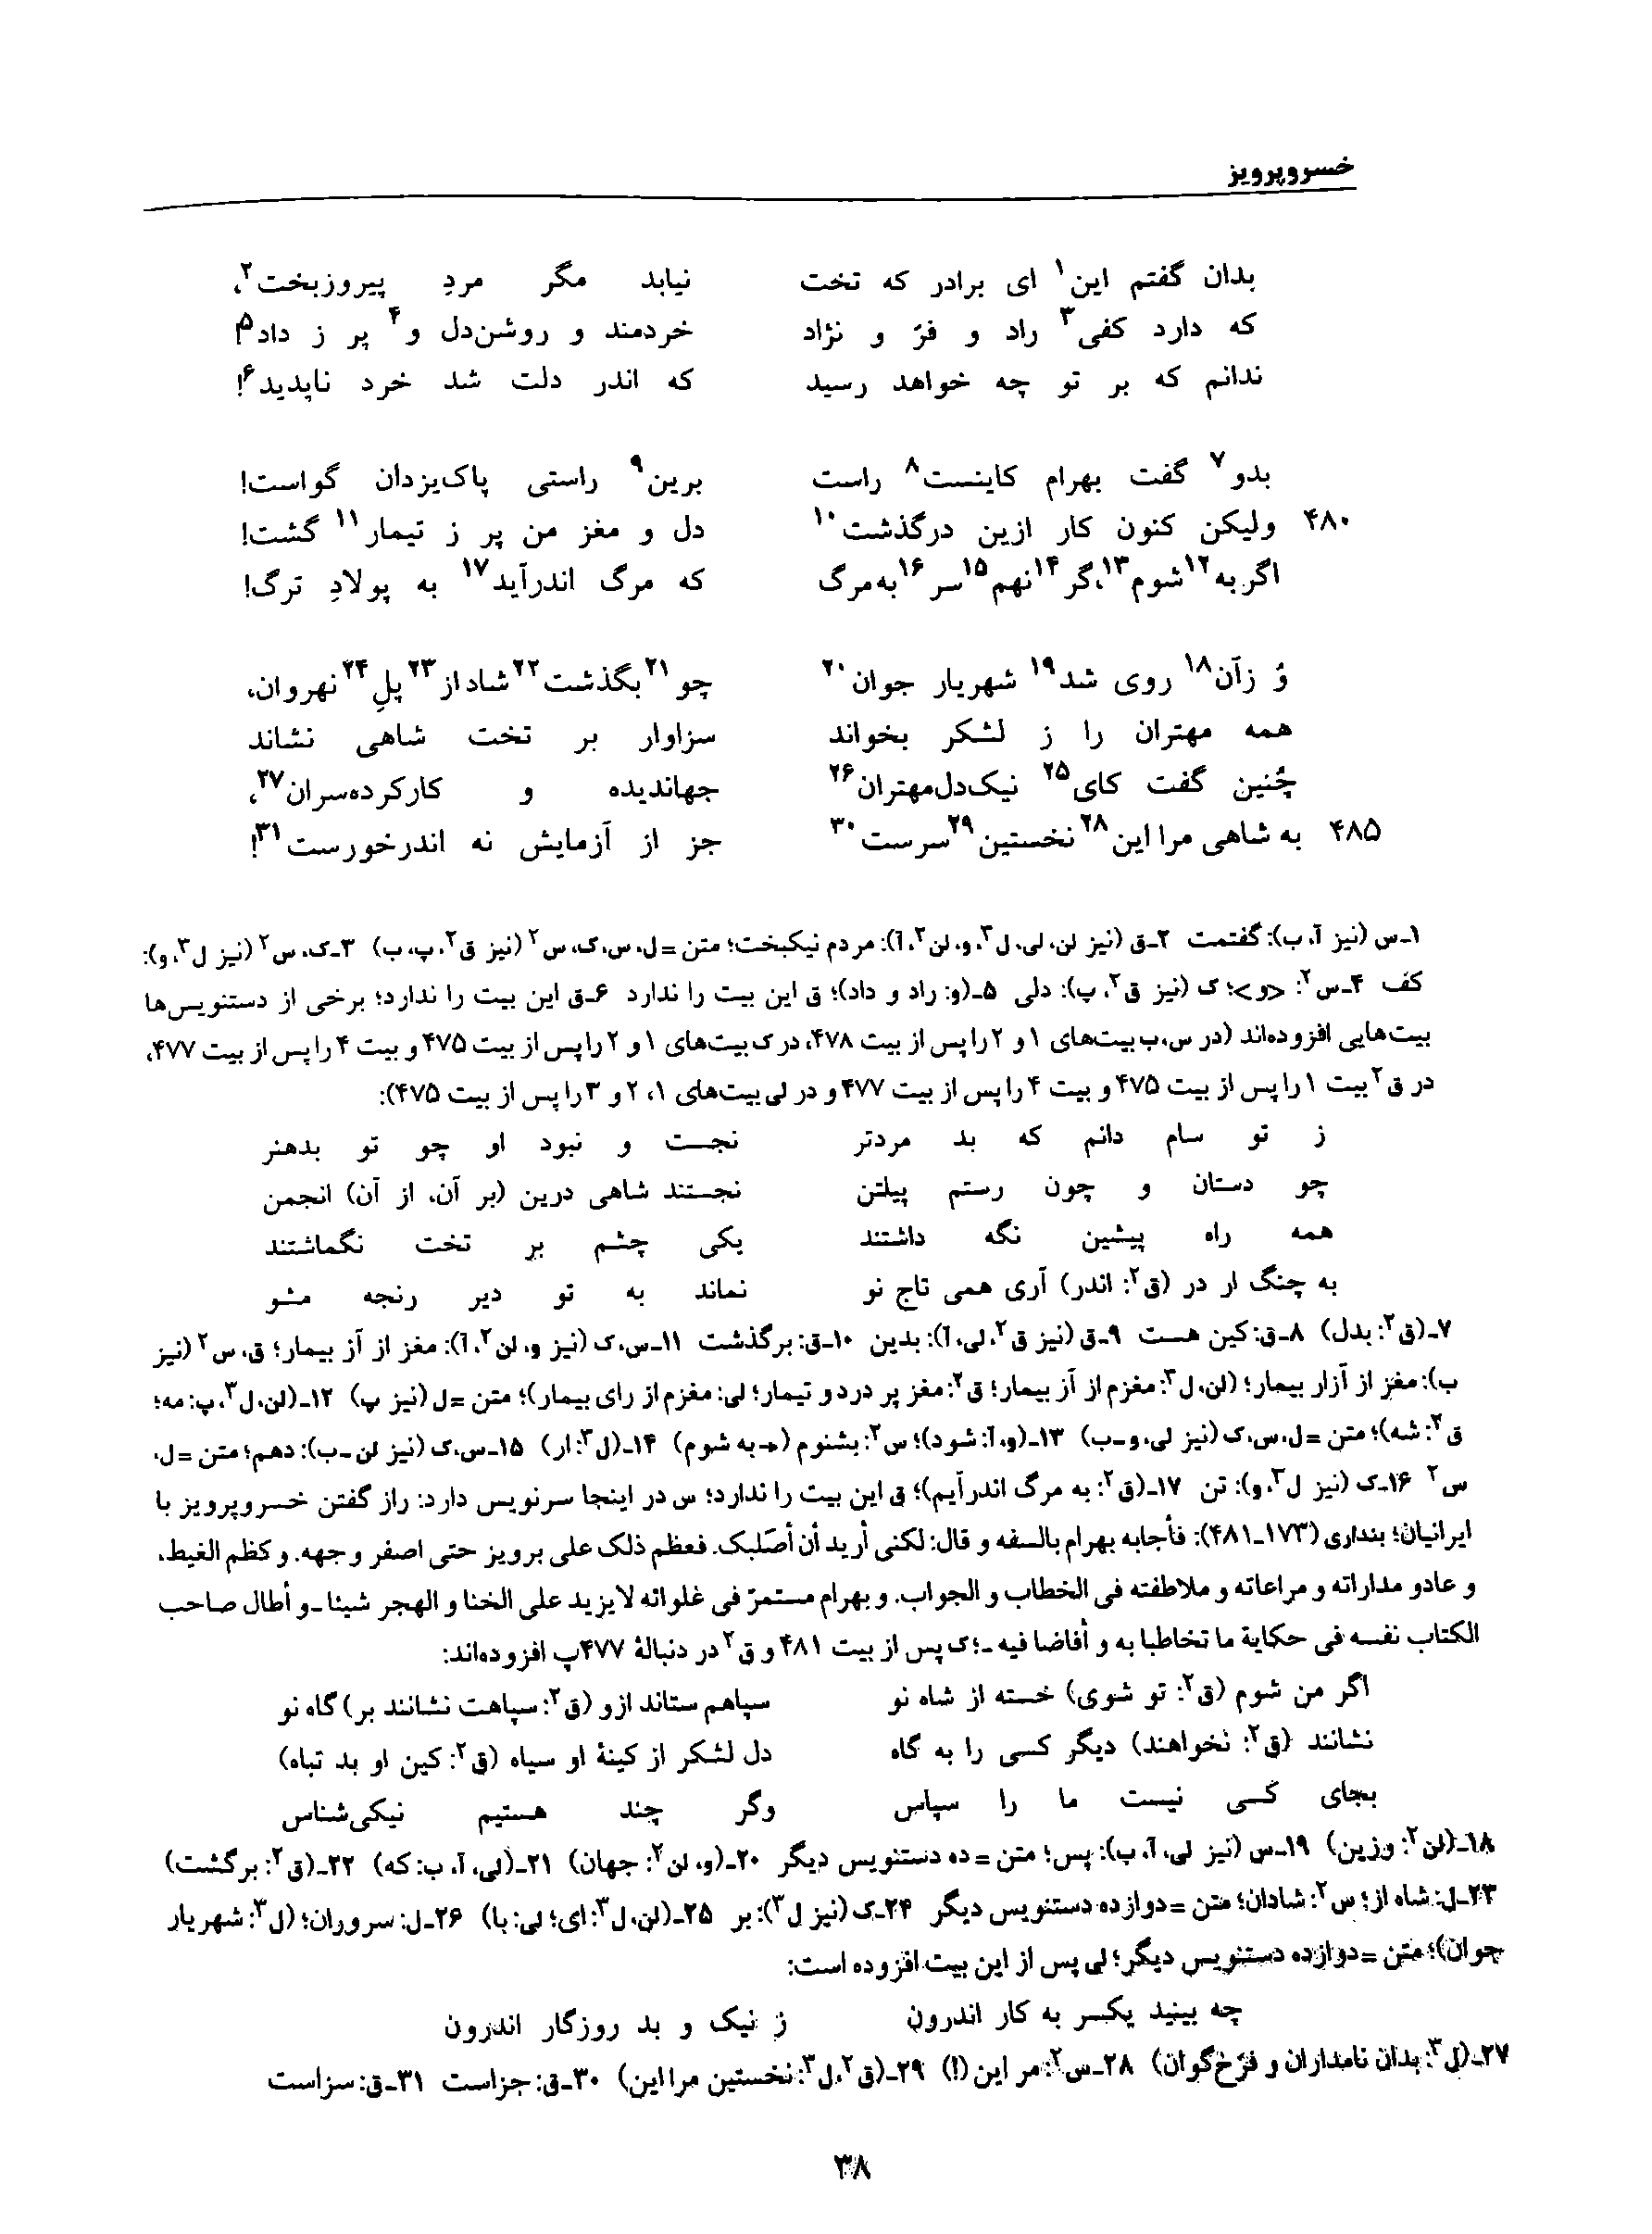 خسروپرویز
بدان گفتم این۱ ای برادر که تخت نیابد مگر مردِ پیروزبخت۲،
که دارد کفی۳ راد و فرّ و نژاد خردمند و روشن‌دل و۴ پر ز داد۵!
ندانم که بر تو چه خواهد رسید که اندر دلت شد خرد ناپدید۶!
بدو۷ گفت بهرام کاینست۸ راست برین۹ راستی پاک‌یزدان گواست!
۴۸۰ ولیکن کنون کار ازین درگذشت۱۰ دل و مغز من پر ز تیمار۱۱ گشت!
اگر به۱۲ شوم۱۳، گر۱۴ نهم۱۵ سر۱۶ به‌مرگ که مرگ اندرآید۱۷ به پولادِ ترگ!
وُ زآن۱۸ روی شد۱۹ شهریار جوان۲۰ چو۲۱ بگذشت۲۲ شاد از۲۳ پلِ۲۴ نهروان،
همه مهتران را ز لشکر بخواند سزاوار بر تخت شاهی نشاند
چُنین گفت کای۲۵ نیک‌دل‌مهتران۲۶ جهاندیده و کارکرده‌سران۲۷،
۴۸۵ به شاهی مرا این۲۸ نخستین۲۹ سرست۳۰ جز از آزمایش نه اندرخورست۳۱!
۱ـ س (نیز آ، ب): گفتمت ۲ـ ق (نیز لن، لی، ل۳، و، لن۲، آ): مردم نیکبخت؛ متن = ل، س، ک، س۲ (نیز ق۲، پ، ب) ۳ـ ک، س۲ (نیز ل۳، و):
کف ۴ـ س۲: <و>؛ ک (نیز ق۲، پ): دلی ۵ـ (و: راد و داد)؛ ق این بیت را ندارد ۶ـ ق این بیت را ندارد؛ برخی از دستنویس‌ها
بیت‌هایی افزوده‌اند (در س، ب بیت‌های ۱ و ۲ را پس از بیت ۴۷۸، در ک بیت‌های ۱ و ۲ را پس از بیت ۴۷۵ و بیت ۴ را پس از بیت ۴۷۷،
در ق۲ بیت ۱ را پس از بیت ۴۷۵ و بیت ۴ را پس از بیت ۴۷۷ و در لی بیت‌های ۱، ۲ و ۳ را پس از بیت ۴۷۵):
ز تو سام دانم که بد مردتر نجست و نبود او چو تو بدهنر
چو دستان و چون رستم پیلتن نجستند شاهی درین (بر آن، از آن) انجمن
همه راه پیشین نگه داشتند یکی چشم بر تخت نگماشتند
به چنگ ار در (ق۲: اندر) آری همی تاج نو نماند به تو دیر رنجه مشو
۷ـ (ق۲: بدل) ۸ـ ق: کین هست ۹ـ ق (نیز ق۲، لی، آ): بدین ۱۰ـ ق: برگذشت ۱۱ـ س، ک (نیز و، لن۲، آ): مغز از آز بیمار؛ ق، س۲ (نیز
ب): مغز از آزار بیمار؛ (لن، ل۳: مغزم از آز بیمار؛ ق۲: مغز پر درد و تیمار؛ لی: مغزم از رای بیمار)؛ متن = ل (نیز پ) ۱۲ـ (لن، ل۳، پ: مه؛
ق۲: شه)؛ متن = ل، س، ک (نیز لی، و ـ ب) ۱۳ـ (و، آ: شود)؛ س۲: بشنوم (← به شوم) ۱۴ـ (ل۳: ار) ۱۵ـ س، ک (نیز لن ـ ب): دهم؛ متن = ل،
س۲ ۱۶ـ ک (نیز ل۳، و): تن ۱۷ـ (ق۲: به مرگ اندرآیم)؛ ق این بیت را ندارد؛ س در اینجا سرنویس دارد: راز گفتن خسروپرویز با
ایرانیان؛ بنداری (۱۷۳ـ۴۸۱): فأجابه بهرام بالسفه و قال: لکنی أرید أن أصَلبک. فعظم ذلک علی برویز حتی اصفر وجهه. و کظم الغیط،
و عادو مداراته و مراعاته و ملاطفته فی الخطاب و الجواب. و بهرام مستمرّ فی غلوائه لا یزید علی الخنا و الهجر شیئا ـ و أطال صاحب
الکتاب نفسه فی حکایة ما تخاطبا به و أفاضا فیه ـ؛ ک پس از بیت ۴۸۱ و ق۲ در دنبالهٔ ۴۷۷پ افزوده‌اند:
اگر من شوم (ق۲: تو شوی) خسته از شاه نو سپاهم ستاند ازو (ق۲: سپاهت نشانند بر) گاه نو
نشانند (ق۲: نخواهند) دیگر کسی را به گاه دل لشکر از کینهٔ او سیاه (ق۲: کین او بد تباه)
بجای کسی نیست ما را سپاس وگر چند هستیم نیکی‌شناس
۱۸ـ (لن۲: وزین) ۱۹ـ س (نیز لی، آ، ب): پس؛ متن = ده دستنویس دیگر ۲۰ـ (و، لن۲: جهان) ۲۱ـ (لی، آ، ب: که) ۲۲ـ (ق۲: برگشت)
۲۳ـ ل: شاه از؛ س۲: شادان؛ متن = دوازده دستنویس دیگر ۲۴ـ ک (نیز ل۳): بر ۲۵ـ (لن، ل۳: ای؛ لی: یا) ۲۶ـ ل: سروران؛ (ل۳: شهریار
جوان)؛ متن = دوازده دستنویس دیگر؛ لی پس از این بیت افزوده است:
چه بینید یکسر به کار اندرون ز نیک و بد روزگار اندرون
۲۷ـ (ل۳: بدان نامداران و فرّخ‌گوان) ۲۸ـ س۲: مر این (!) ۲۹ـ (ق۲، ل۳: نخستین مرا این) ۳۰ـ ق: جزاست ۳۱ـ ق: سزاست
۳۸